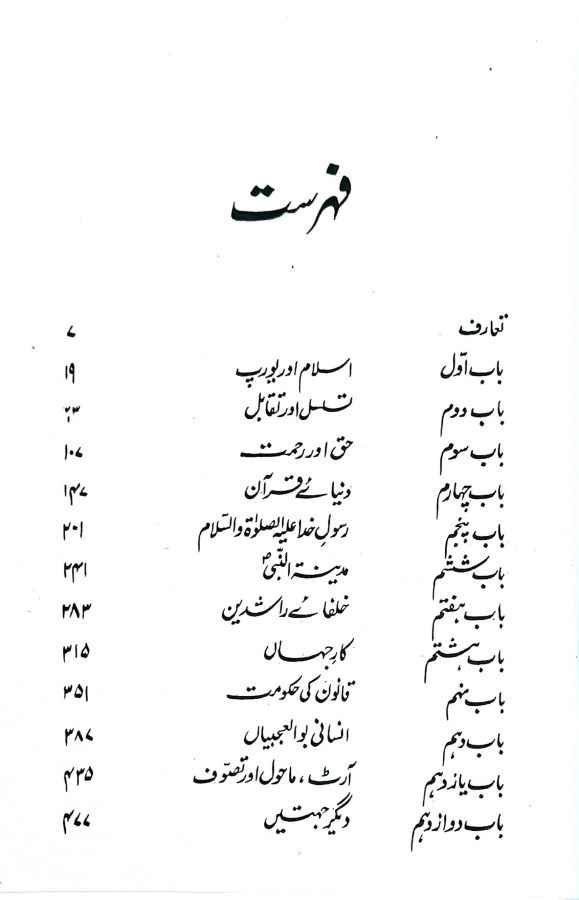 فہرست
تعارف ۷
باب اوّل اسلام اور یورپ ۱۹
باب دوم تسلسل اور تقابل
باب سوم حق اور رحمت ۱۰۷
باب چہارم دنیائے قرآن ۱۴۷
باب پنجم رسولِ خدا علیہ الصلوٰۃ والسّلام ۲۰۱
باب ششم مدینۃ النّبیؐ ۲۴۱
باب ہفتم خلفائے راشدین ۲۸۳
باب ہشتم کارِ جہاں ۳۱۵
باب نہم قانون کی حکومت ۳۵۱
باب دہم انسانی بوالعجبیاں ۳۸۷
باب یازدہم آرٹ، ماحول اور تصوّف ۴۳۵
باب دوازدہم دیگر جہتیں ۴۷۷